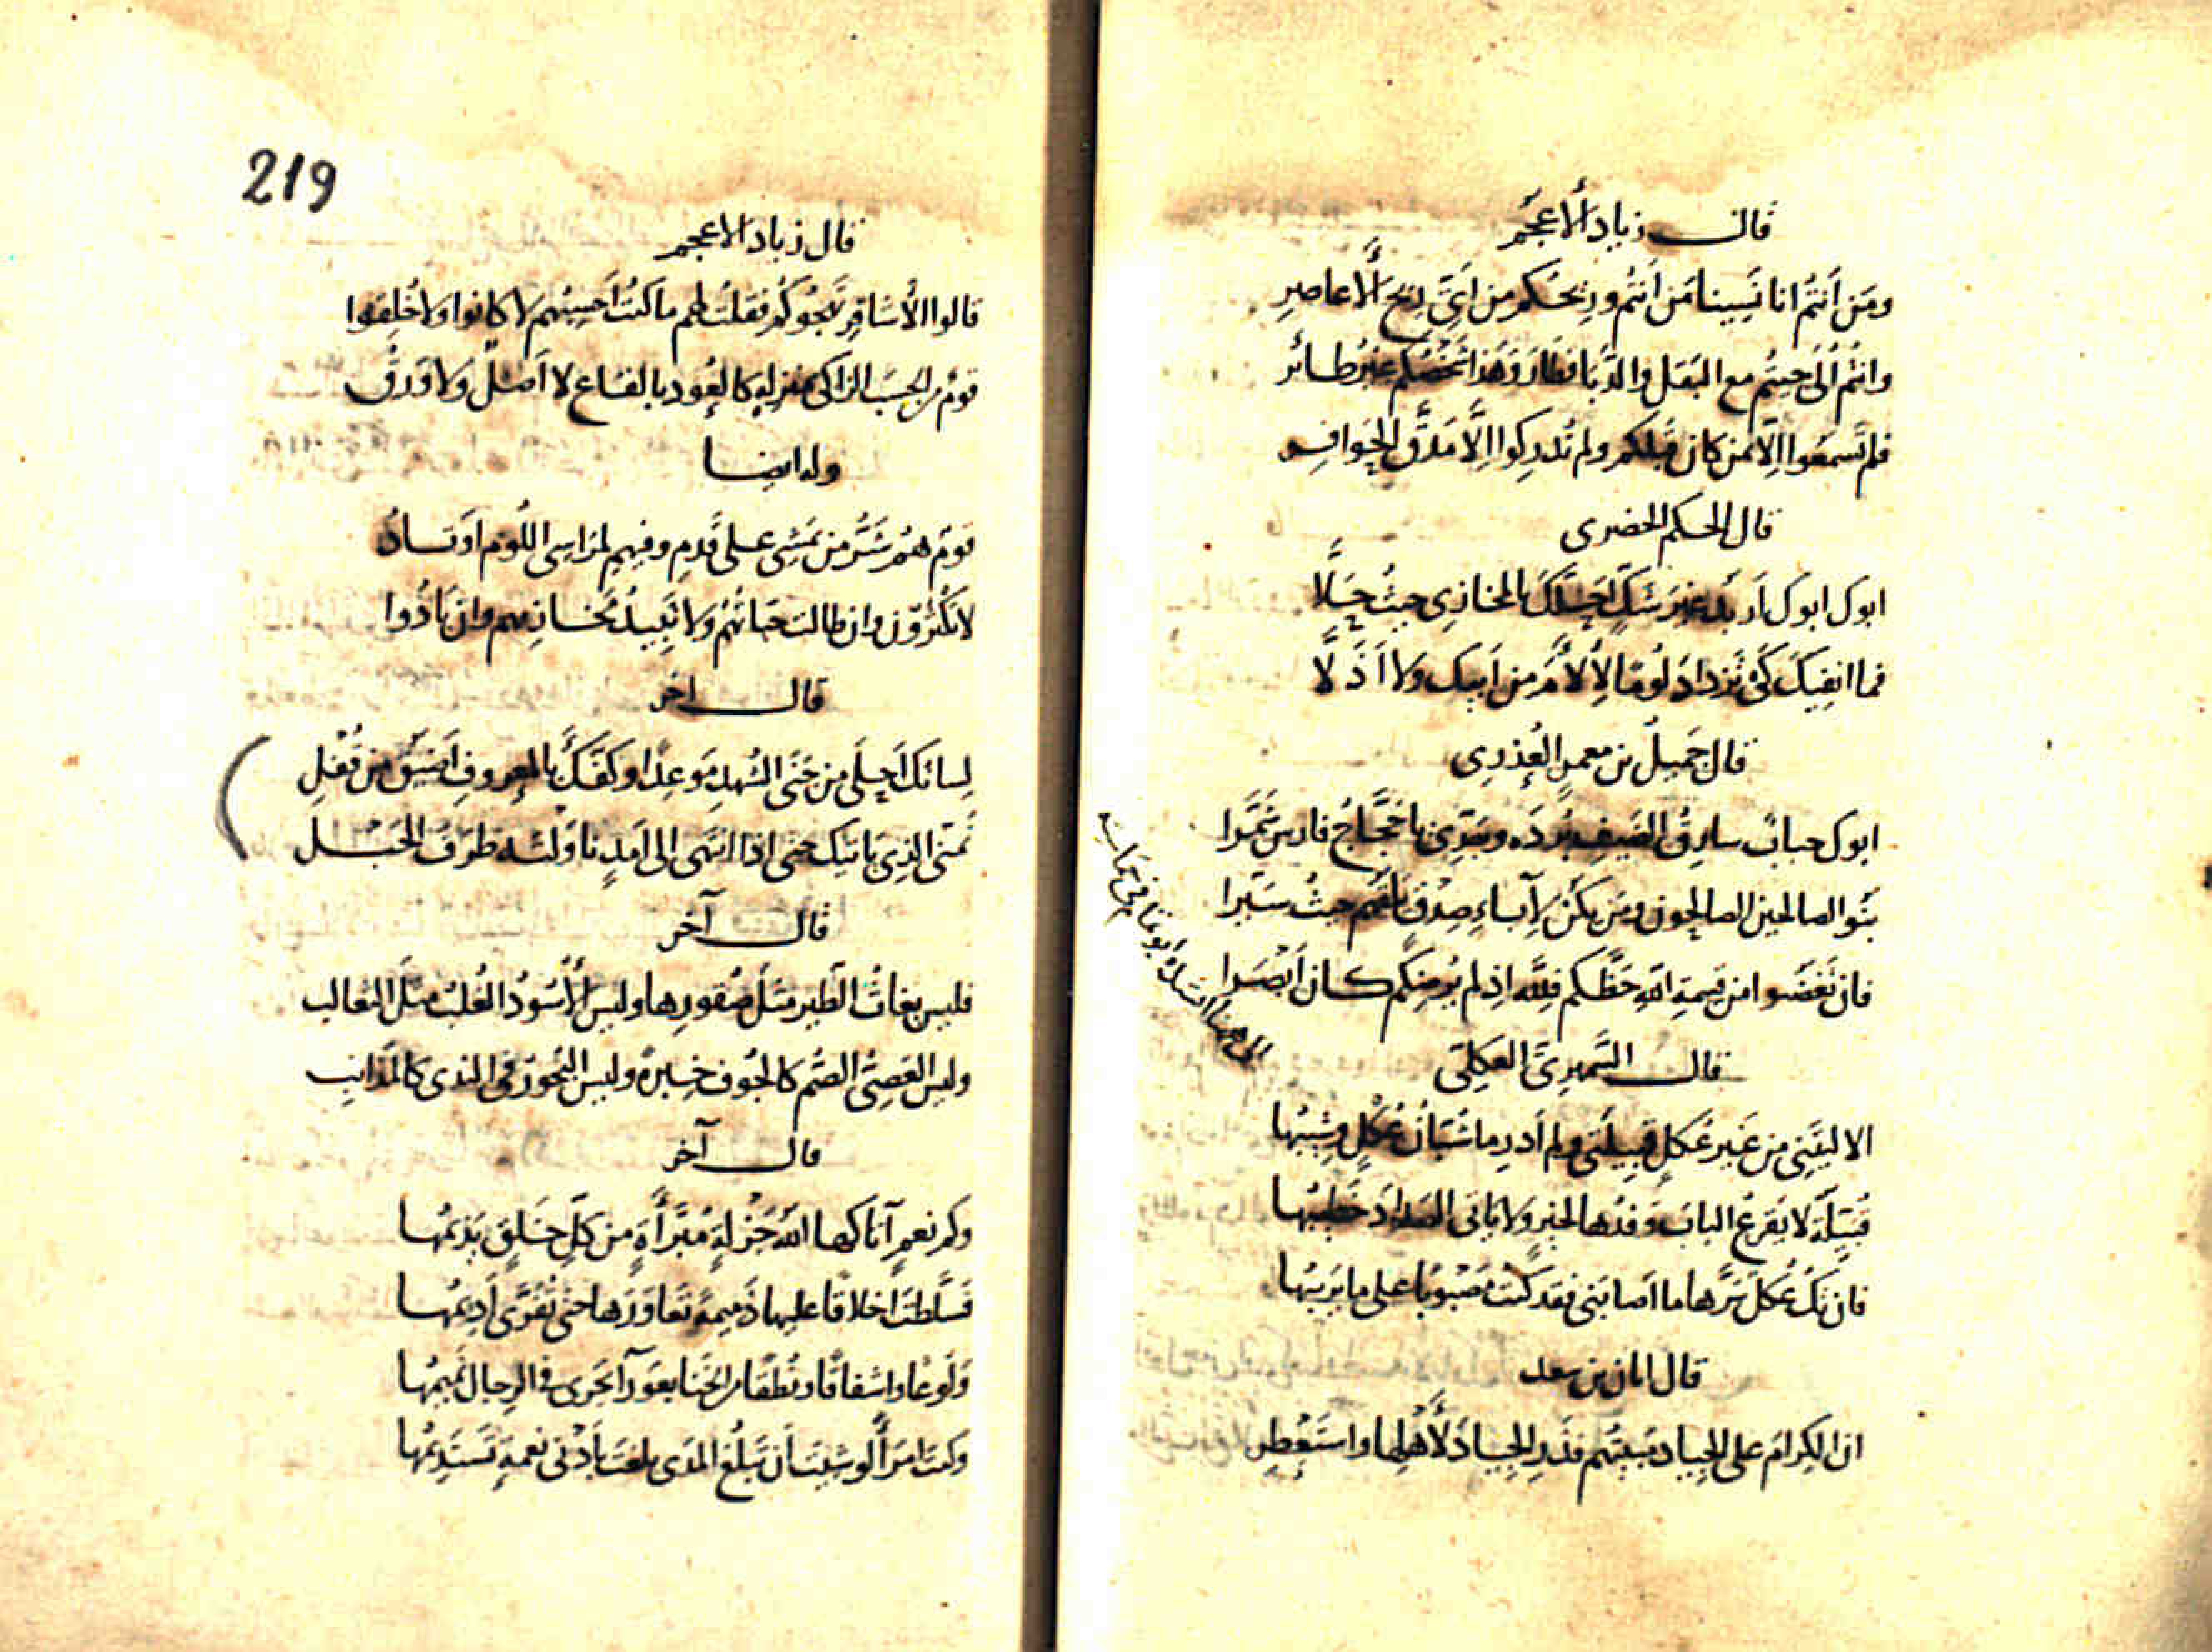 قال زياد الأعجم
ومَن أنتمُ انا نَسِينا مَن أنتمُ وريحكم من أَيّ ريح الأعاصرِ
وانتُم أُلَى جيتُم مع البَقل والدَّبا فطار وَهَذا شَخصُكم غيرُ طائر
فلم تَسمَعوا اِلّا بمن كان قبلكم ولم تُدرِكوا اِلّا مَدَقَّ الحَوافِر
قال الحكم الخضرى
ابوك ابوك اَربَدُ غيرَ شكٍّ اَحلَّكَ بالمخازى حيثُ حَلَّا
فما انفيكَ كَى تزدادَ لُومًا لِاَلأَمَ من اَبيك ولا اَذَلَّا
قال جميلُ بن معمرٍ العُذرِى
ابوك حباب سارقُ الضيفِ بُردَه وجَدِّى يا حَجّاجُ فارسُ شَمَّرا
بَنُو الصالحين الصالحون ومَن يكن لآباءِ صِدقٍ يَلقَهم حيثُ سَيَّرا
فان تَغضَبوا من قِسمةِ اللهِ حَظَّكم فلِلّه اِذ لم يُرضِكم كان اَبصَرا
الى ههنا
قال السَّمهرِىّ العكلِىّ
الا ليتَنِى من غَير عُكلٍ قبيلَتى ولم اَدرِ ما شُبّانُ عُكلٍ وشِيبُها
قُبيّلَة لا يَقرعُ البابَ وَفدُها لخيرٍ ولا ياتى السَدادَ خَطِيبُها
فان تكُ عُكل سَرَّها ما اَصابَنى فقد كنتُ مَصبوبًا على ما يَرِيبُها
قال ابان بن سعد
ان الكِرامَ على الجِيادِ مَبِيتُهم فذَرِ الجِيادَ لأَهلِها واستَعطِر
219
قال زياد الاعجم
قالوا الأَشاقِر تَهجُوكُم فقلتُ لهم ما كنتُ اَحسِبُهم لا كانوا ولا خُلِقوا
قومٌ من الحسَبِ الزاكى بمنزلةٍ كالعُودِ بالقاع لا اَصلٌ وَلا وَرَقُ
وله ايضا
قومٌ هُمُ شَرُّ من يَمشِى على قَدمٍ وفيهِم لمراسِى اللُوم اَوتادُ
لا يكثرُون وان طالت حَياتُهُم ولا تَبِيدُ مَخازِيهم وان بادُوا
قال اخر
لِسانكَ اَحلَى من جَنَى الشُهدِ مَوعِدًا وكفّكَ بالمعروفِ اَضيَقُ مِن قُفلِ
تُمَنّى الذِى ياتيك حتى اذا انتَهى الى اَمَدٍ ناوَلتَه طَرَفَ الحَبلِ
قال آخر
فليس بغاثُ الطَيرِ مثلَ صُقورِها وليس الأُسُودُ الغُلبُ مثلَ الثعالب
وليس العصِىُّ الصُم كالجُوفِ خِبرةً وليس البُحورُ فى الندى كالمَذانِب
قال آخر
وكم نعمٍ آتاكها اللهُ جَزلةٍ مُبَرَّأَةٍ من كلِّ خَلقٍ يَذيمُها
فسَلَّطتَ اَخلاقًا عليها ذَميمةً تَعاوَرنَها حتى تَفَرَّى اَدِيمُها
وَلَوعًا واشفاقًا ونُطقًا من الخَنا بعَورآءَ يَجرى فى الرِجالِ نَمِيمُها
وكنتَ امرَأً لو شِئتَ اَن تَبلُغَ المدَى بلغتَ باَدنى نعمةٍ تَستَدِيمُها